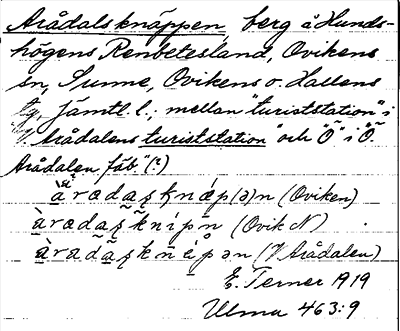 Arådalsknäppen, berg å Hunds-
högens Renbetesland, Ovikens
sn, Sunne, Ovikens o. Hallens
tg, Jämtl. l.; mellan "turiststation" i
V. Arådalens turiststation" och "Ö" i "Ö.
Arådalen fäb." (?)
àradaşknǽp(ə)n (Oviken)
àradaşknípn (Ovik N)
àradaşknépən (V Arådalen)
E. Terner 1919
Ulma 463:9